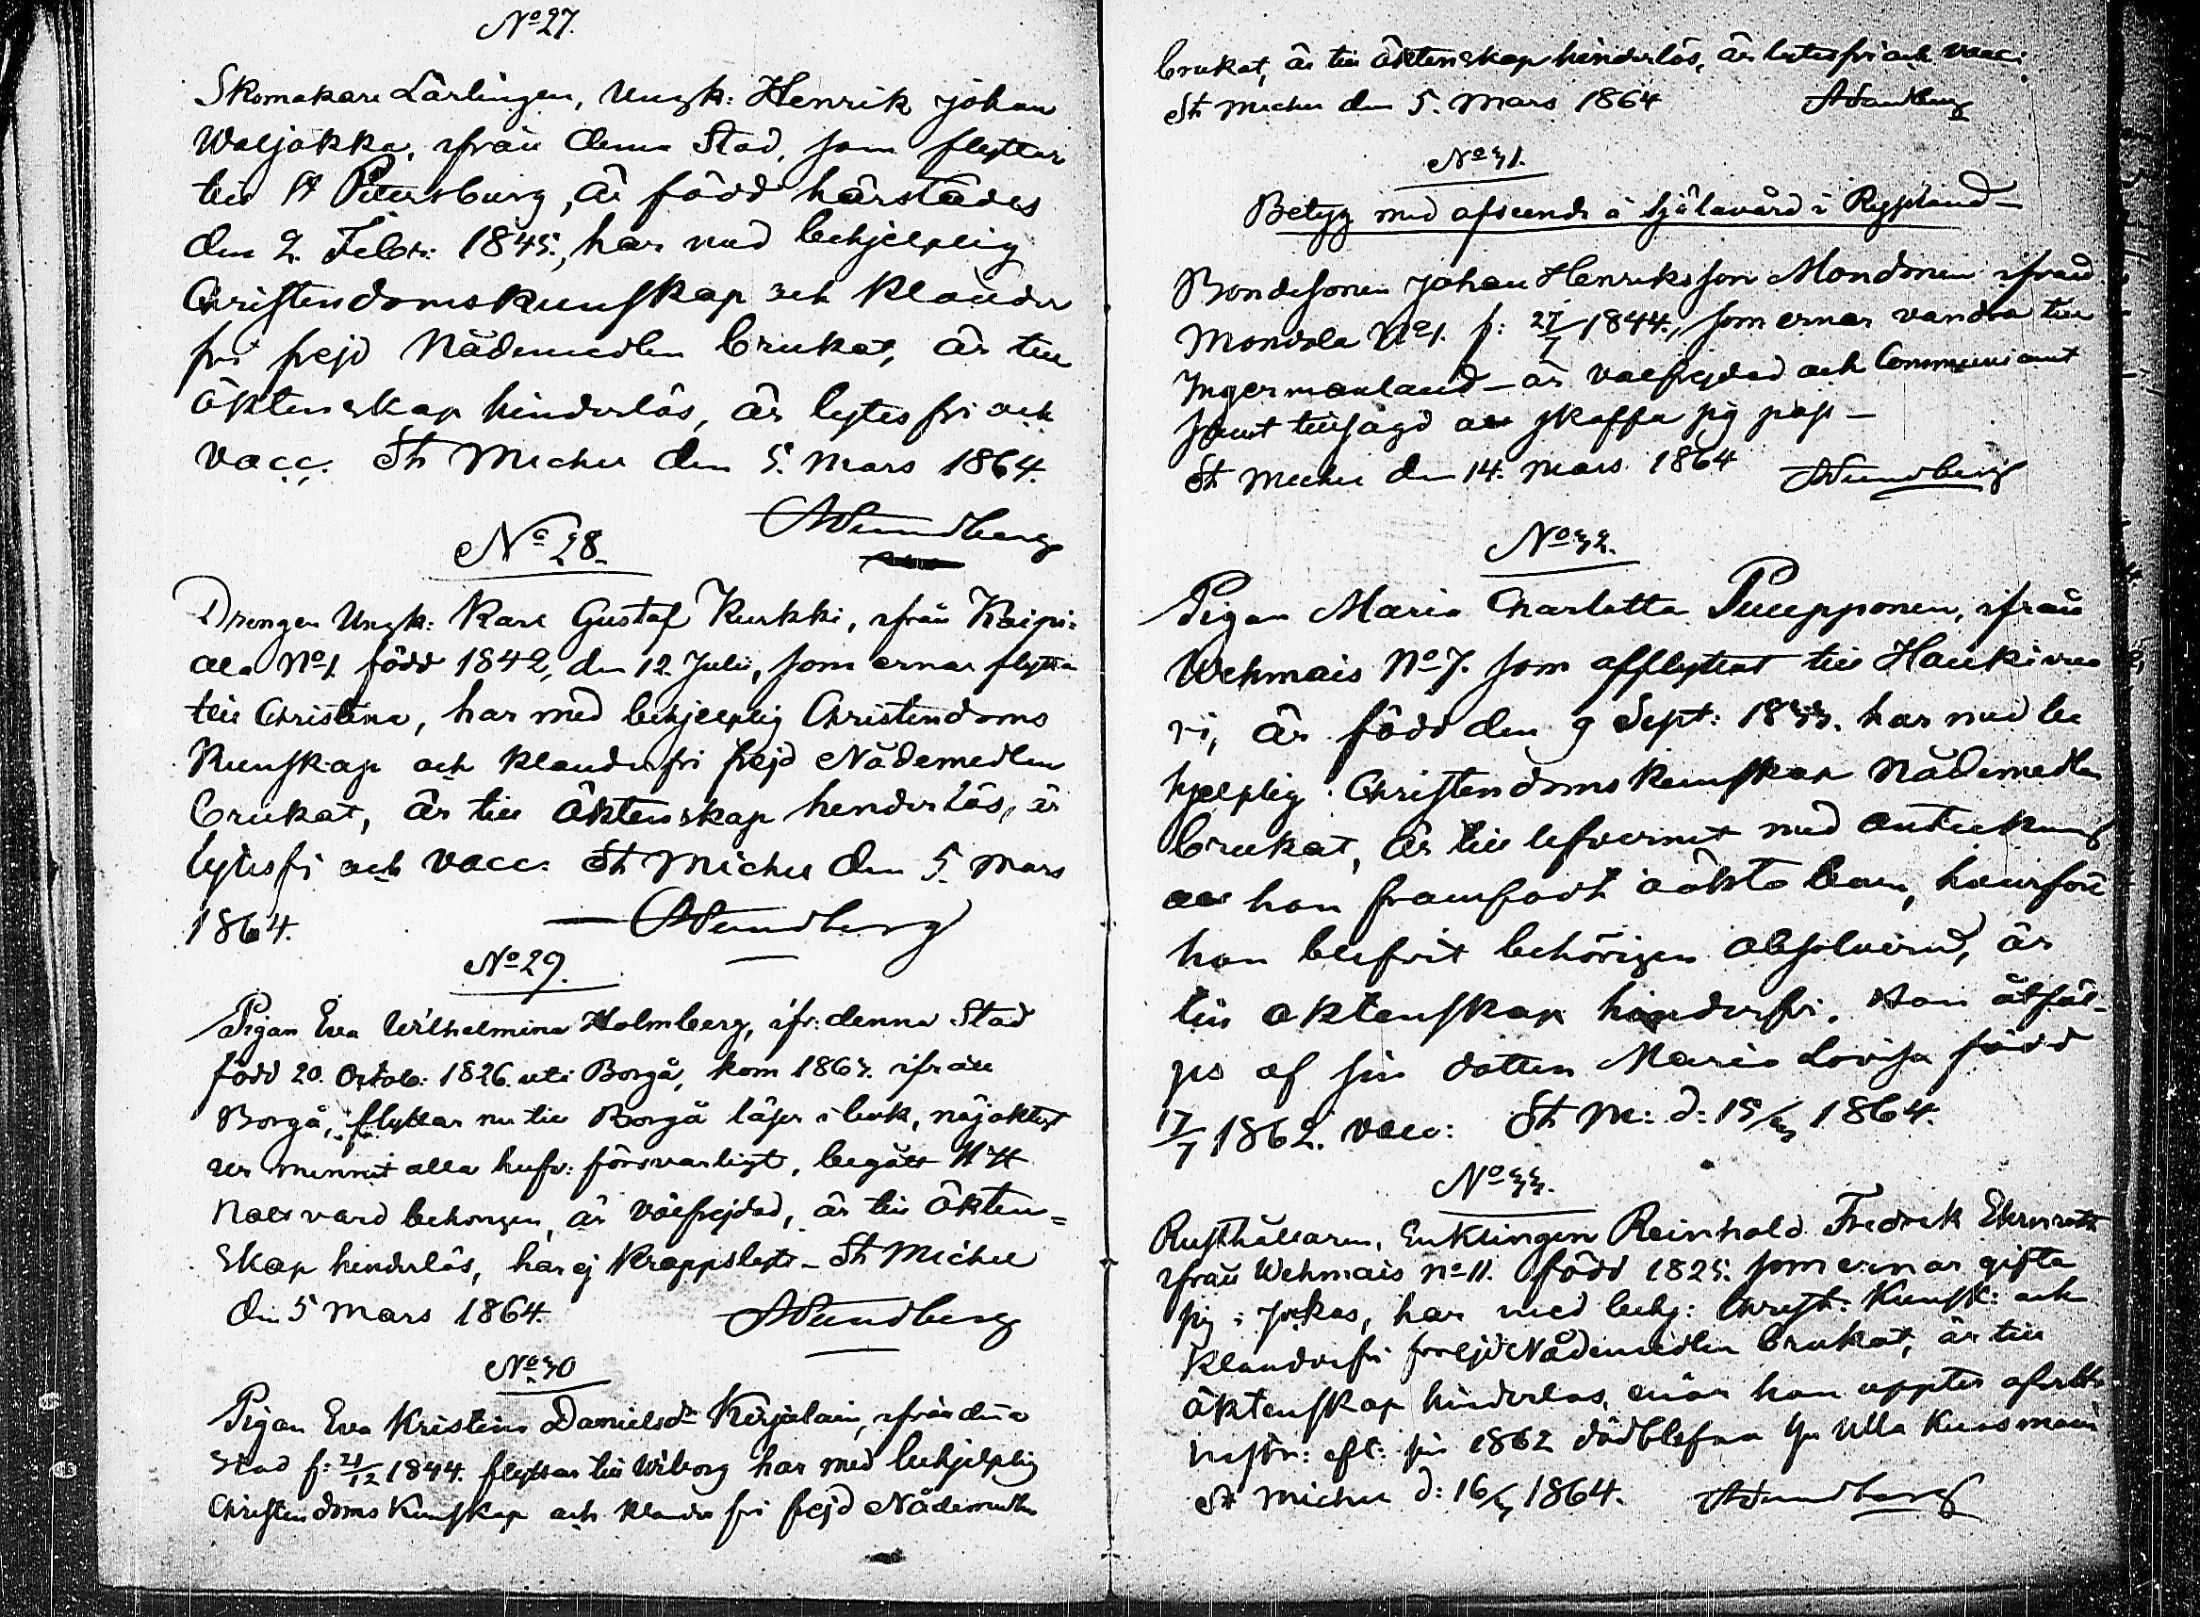 No 27.
Skomakare Lärlingen, Ungk: Henrik Johan
Waljakka, ifrån denna Stad, som flyttar
till St Petersburg, är född härstädes
den 2. Febr: 1845., har med behjelplig
Christendomskunskap och klander
fri frejd Nådemedlen brukat, är till
äktenskap hinderlös, är lytesfri och
vacc. St Michel den 5. Mars 1864.
ASundberg
No 28.
Drengen Ungk: Karl Gustaf Kurkki, ifrån Kaipi-
ala No 1. född 1842, den 12. Juli, som ernar flytta
till Christina, har med behjelplig Christendoms
Kunskap och klanderfri frejd Nådemedlen
brukat, är till äktenskap hinderlös, är
lytesfri och vacc. St Michel den 5. Mars
1864. ASundberg
No 29.
Pigan Eva Wilhelmina Holmberg, ifr: denna Stad
född 20. Octob: 1826. uti Borgå, kom 1863. ifrån
Borgå, flyttar nu till Borgå läser i bok, nöjaktigt
ur minnet alla hufv: försvarligt, begått HH
Nattvard behörigen, är välfrejdad, är till äkten=
skap hinderlös, har ej kroppslyte – St Michel
den 5 Mars 1864. ASundberg
No 30
Pigan Eva Kristina Danielsdr Kirjalain, ifrån dna
Stad f: 21/12 1844. flyttar till Wiborg har med behjelplig
Christendoms Kunskap och klander fri frejd Nådemedlen
brukat, är till äktenskap hinderlös, är lytesfri och vacc:
St Michel den 5. Mars 1864 ASundberg
No 31.
Betyg med afseende å Själavård i Ryssland –
Bondesonen Johan Henriksson Mondonen ifrån
Mondola No 1. f: 27/7 1844., som ernar vandra till
Ingermanland – är välfrejdad och Communicant
samt tillsagd att skaffa sig pass –
St Michel den 14. Mars 1864 ASundberg
No 32.
Pigan Maria Charlotta Pulpponen, ifrån
Wehmais No 7. som afflyttat till Haukivuo
ri, är född den 9 Sept: 1833. har med be
hjelplig Christendoms kunskap Nådemedlen
brukat, är till lefvernet med anteckning
att hon framfödt oäkta barn, hvarföre
hon blifvit behörigen absolverad, är
till äktenskap hinderfri. Hon åtföl-
jes af sin dotter Maria Lovisa född
17/7 1862. vacc: St M: d: 15/3 1864.
No 33.
Rusthållaren, Enklingen Reinhold Fredrik Ehrnrooth
ifrån Wehmais No 11. född 1825. som ernar gifta
sig i Jokas, har med behj: Christ: Kunsk: och
klanderfri frejd Nådemedlen brukat, är till
äktenskap hinderlös, enär han upptes
eft: sin 1862 dödblefna Ulla Kuosmain
St Michel d: 16/3 1864. ASundberg